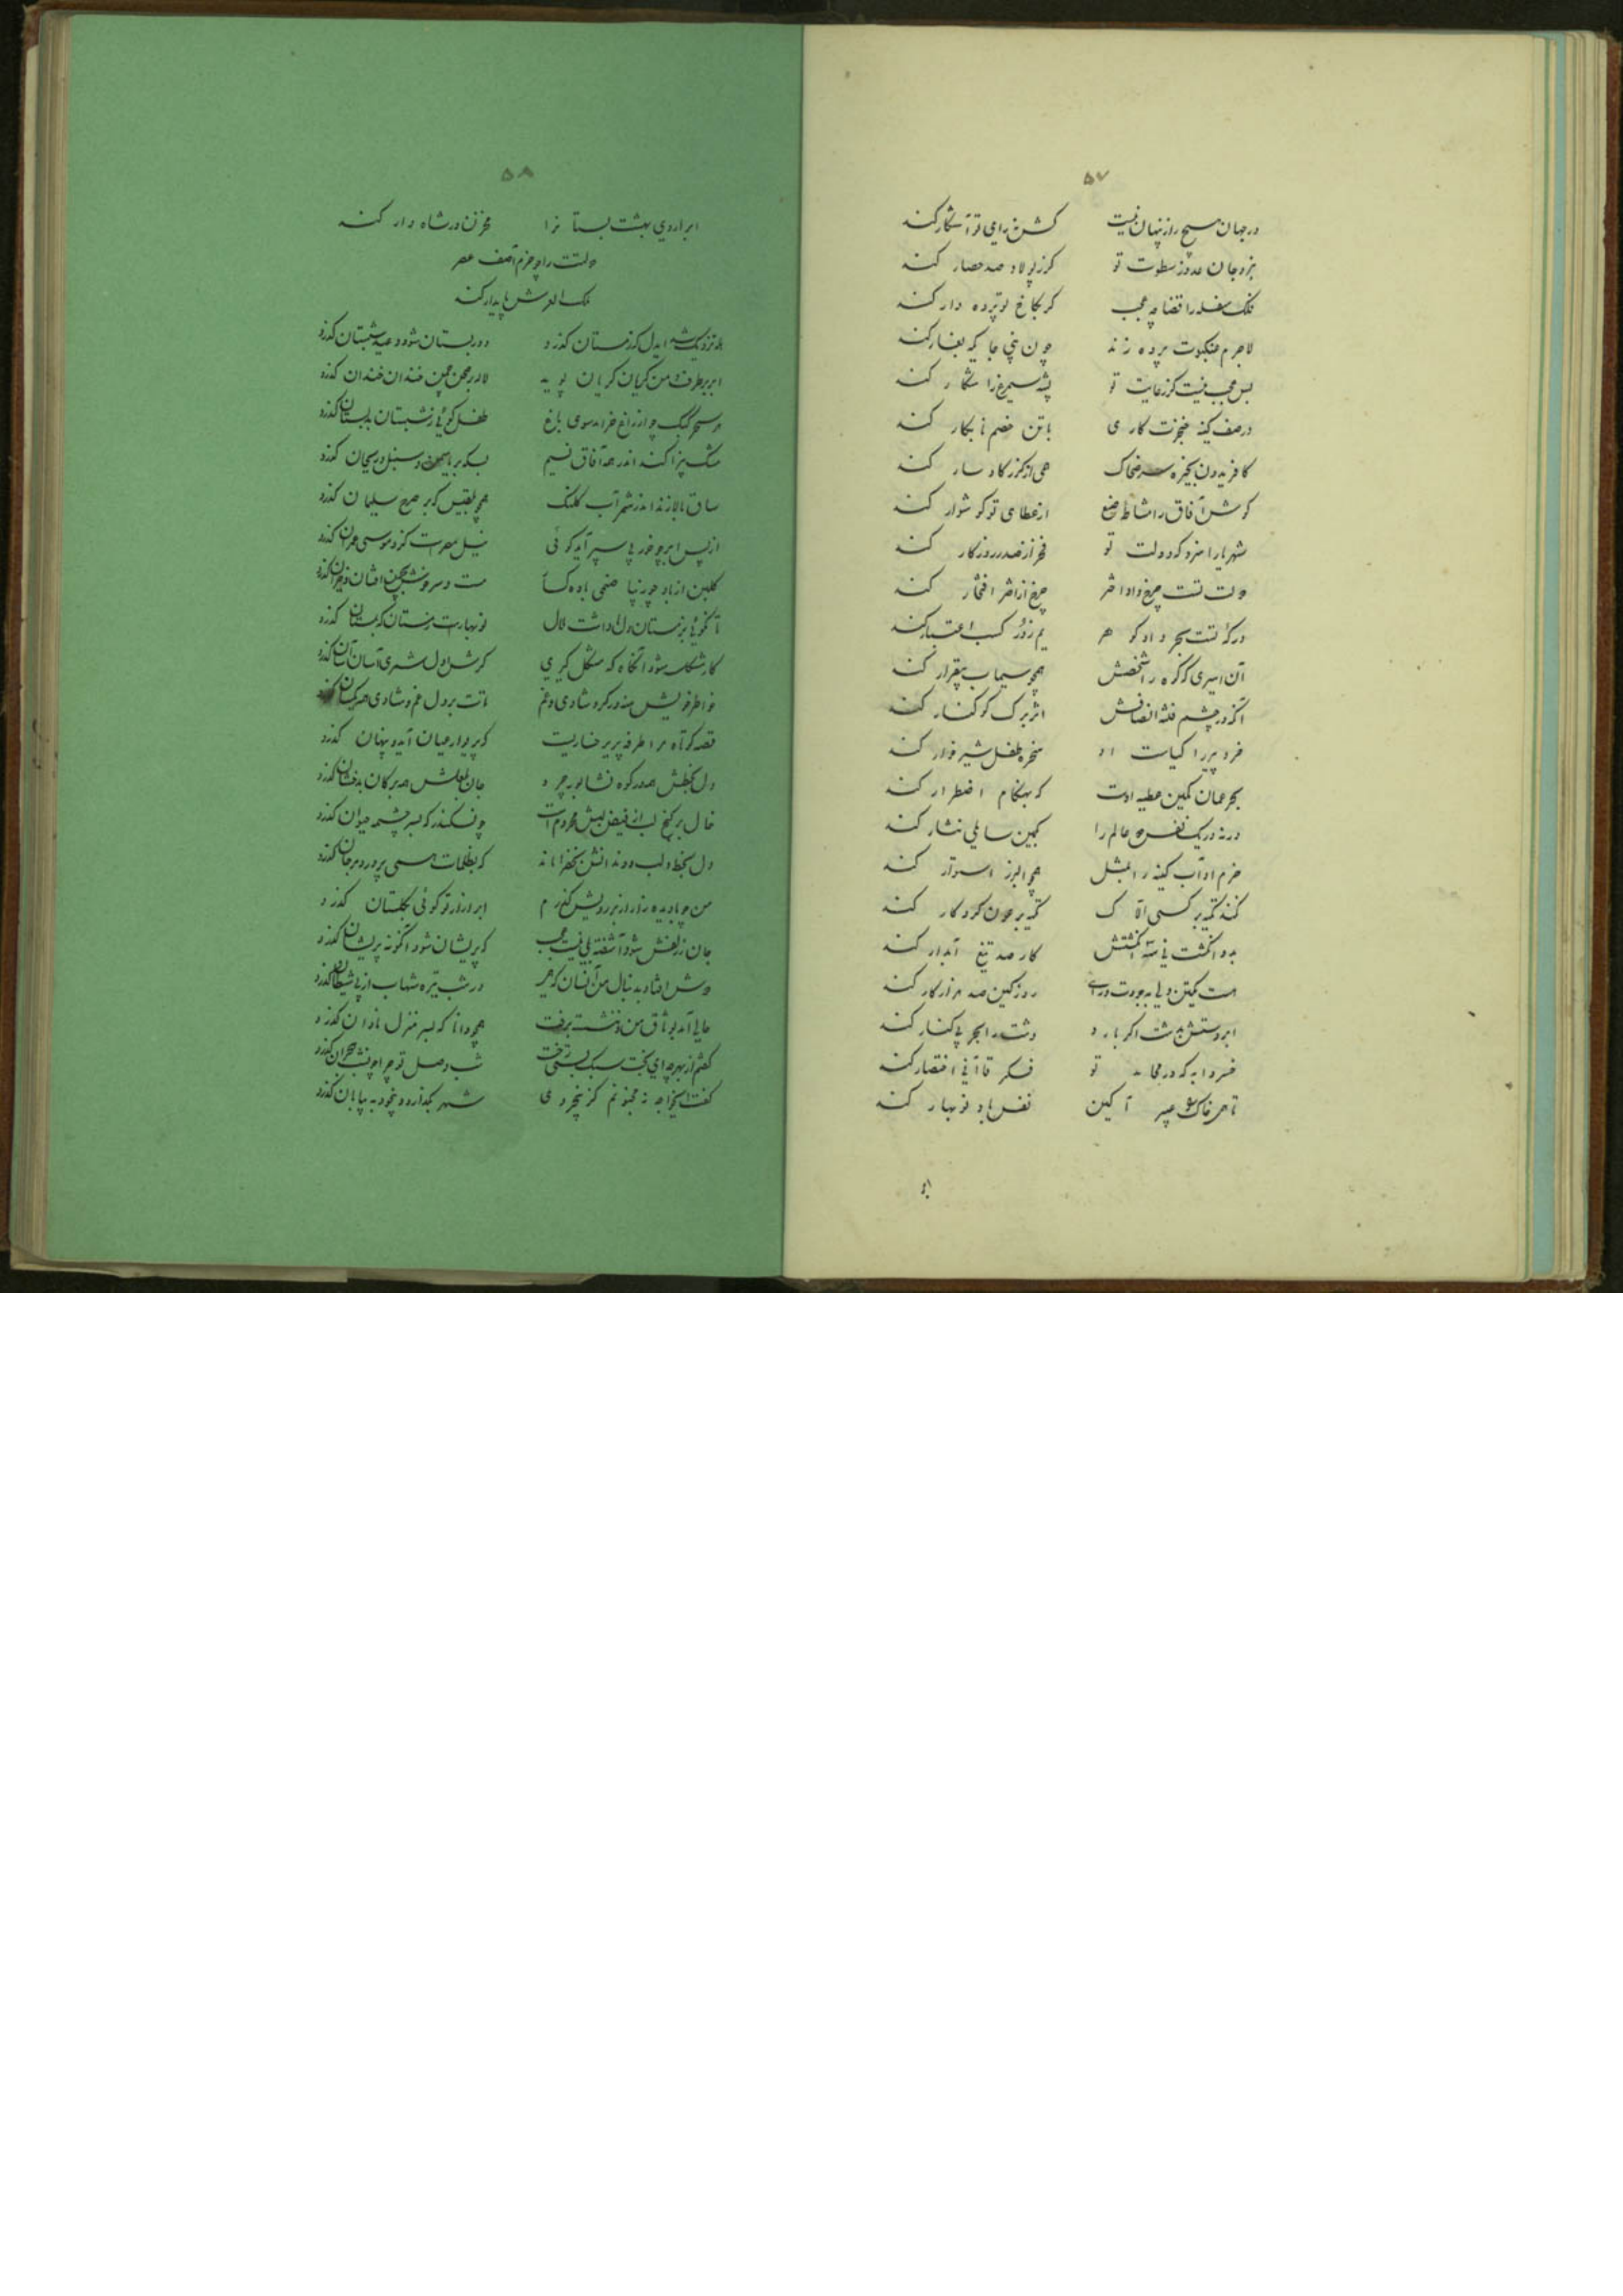 ۵۷
درجهان هیچ راز پنهان نیست کش نه رای تو آشکار کند
نبرد جان عدو ز سطوت تو کر ز پولاد صد حصار کند
فلک سفله را قضا چه عجب کر بکاخ تو پرده دار کند
لاجرم عنکبوت پرده زند چون نبی جایکه بغار کند
بس عجب نیست کز رعایت تو پشه سیمرغ را شکار کند
در صف کینه خنجرت کاری با تن خصم نابکار کند
کافریدون بخیره سر ضحاک همی از کرز کاو سار کند
کوش آفاق را مشاطه صنع از عطای تو کوشوار کند
شهریارا سزد که دولت تو فخر از صدر روزکار کند
دولت تست چرخ و او اختر چرخ از اختر افتخار کند
درکه تست بحر و او کوهر یم ز در کسب اعتبار کند
آن امیری که کوه را سخطش همچو سیماب بیقرار کند
آنکه در چشم فتنه انصافش اثر برک کوکنار کند
خرد پیر را کیاست او سخره طفل شیرخوار کند
بحر عمان کمین عطیه اوست که بهنکام اضطرار کند
ورنه در یک نفس همه عالم را بکمین سایلی نثار کند
حزم او آب کینه را بمثل همچو البرز استوار کند
نکند تکیه بر کسی الاک تکیه بر عون کردکار کند
بدو انکشت نی سه انکشتش کار صد تیغ آبدار کند
هست یکتن ولی بجودت رای روز کین صد هزار کار کند
ابر دستش بدشت اکر بارد دشت را بحر بی کنار کند
خسروا به که در محامد تو فکر قاآنی اختصار کند
تا همی خاک را عبیر آکین نفس باد نوبهار کند
ابر
۵۸
ابر اردی بهشت بستانرا مخزن در شاهوار کند
دولتت را چو حزم آصف عصر
ملک العرش پایدار کند
عید نزدیک شد ایدل که زمستان کذرد دور بستان شود و عهد شبستان کذرد
ابر بر طرف چمن کریان کریان پوید لاله در صحن چمن خندان خندان کذرد
هر سحر کبک چو از راغ خرامد سوی باغ طفل کوئی ز شبستان بدبستان کذرد
مشک بیزا کند اندر همه آفاق نسیم بسکه بر یاسمن و سنبل و ریحان کذرد
ساق بالا زند اندر شمر آب کلنک همچو بلقیس که بر صرح سلیمان کذرد
از پس ابر چو خور پی سپر آید کوئی نیل مصرست کزو موسی عمران کذرد
کلبن از باد چو زیبا صنمی باده کسار مست و سرخوش بچمن افتان و خیزان کذرد
تا نکوئی بزمستان دل ما داشت ملال نوبهارست زمستان که بمستان کذرد
کار مشکل شود آنکاه که مشکل کیری کرش در دل شمری آسان آسان کذرد
خواطر خویش منه در کرو شادی و غم تات بر دل غم و شادی همه یکسان کذرد
قصه کوتاه مرا طرفه پریرخساریست که پریوار عیان آید و پنهان کذرد
دل بخطش همه در کوه نشابور چرد جان بلعلش همه بر کان بدخشان کذرد
خال بر کنج لب از فیض لبش محرومست چون سکندر که بسرچشمه حیوان کذرد
دل بخط و لب و دندانش بخضرا ماند که بظلمات همی پرورد و مرجان کذرد
من چو یاد آیدم زار زار از بر رویش کذرم ابر آزار تو کوئی بکلستان کذرد
جان ز زلفش شود آشفته بلی نیست عجب کو پریشان شود آنکو به پریشان کذرد
دوش افتاد بدنبال من آنسان که مهر در شب تیره شهاب از پی شیطان کذرد
حالی آمد بوثاق من و ننشست برفت همچو دانا که بسر منزل نادان کذرد
کفتم از بهر چه ای بخت سبک بستی رخت شب وصل تو چرا چون شب هجران کذرد
کفت ایخواجه نه مجنونم کز بیخردی شهر بکذارد و بیخود به بیابان کذرد